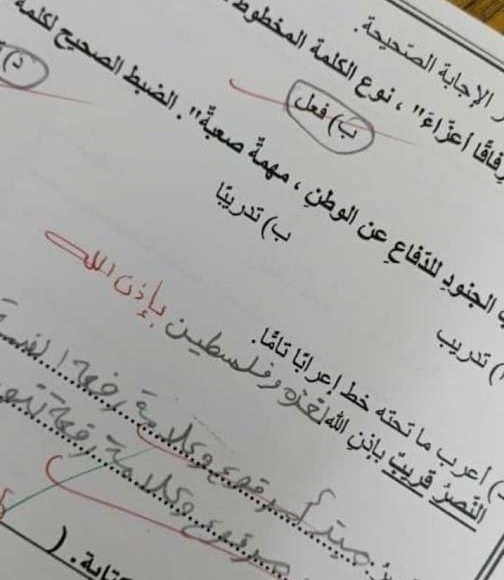 الإجابة الصّحيحة.
رفاقًا أعزّاءَ" ، نوع الكلمة المخطوط
ب) فعل
الجنودِ للدّفاعِ عن الوطنِ ، مهمةٌ صعبةٌ". الضبط الصحيح لكلمة
) تدريب
ب) تدريبًا
أعرب ما تحته خط إعرابًا تامًّا.
النّصرُ قريبٌ بإذنِ الله لغزة وفلسطين بإذن الله
مبتدأ مرفوع وعلامة رفعه الضمة
مرفوع وعلامة رفعه
كتابة. (